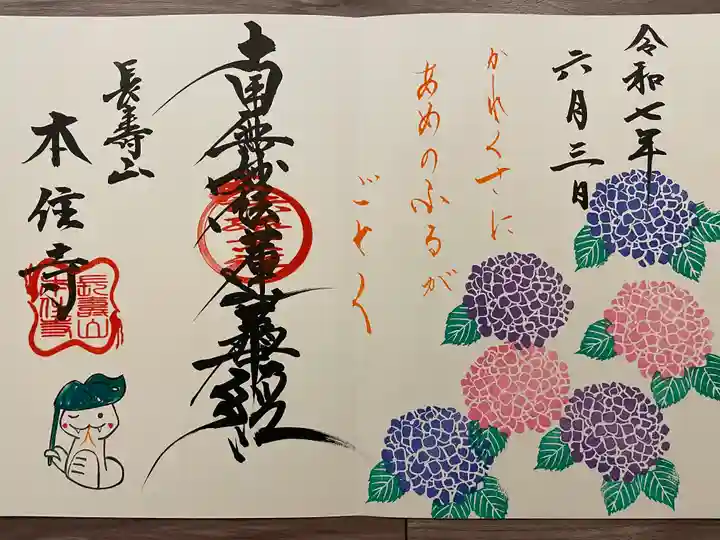 令和七年
六月三日
かれくさに
あめのふるが
ごとく
南無妙法蓮華経
長壽山
本住寺
長壽山
本住寺